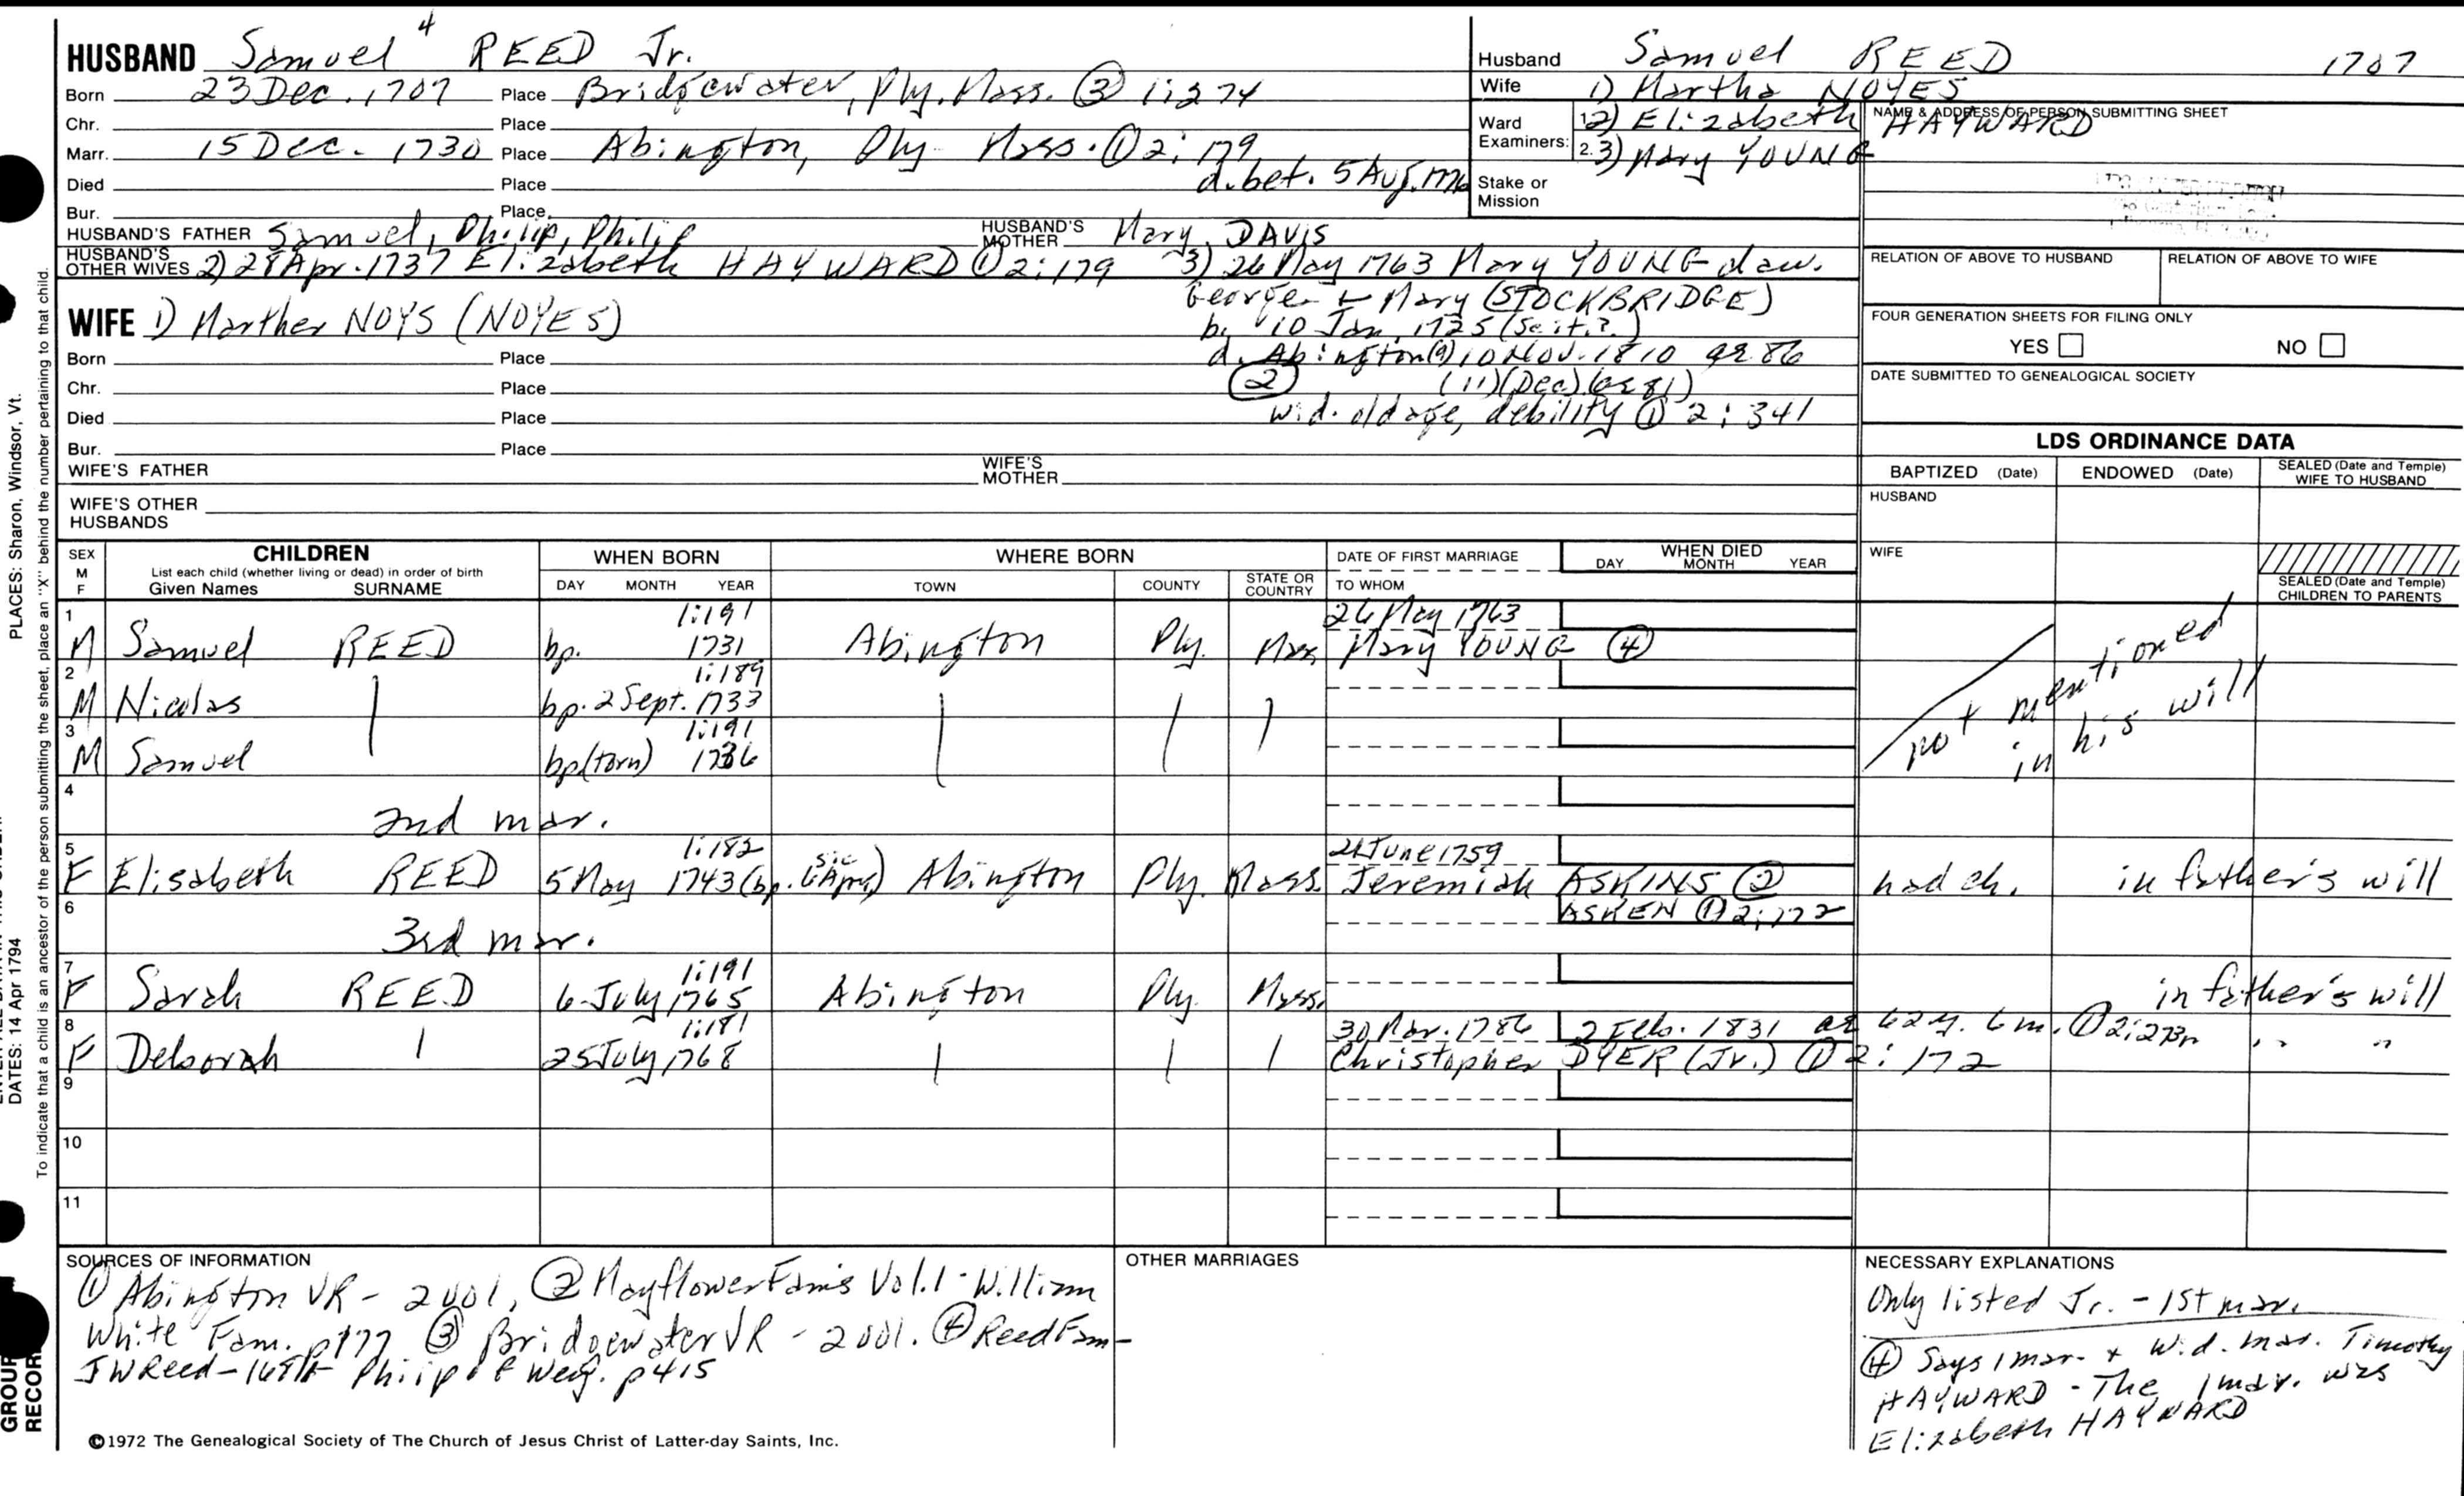 HUSBAND Samuel 4 REED Jr.
Born 23 Dec. 1707 Place Bridgewater, Ply. Mass. ③ 1:274
Chr. Place
Marr. 15 Dec. 1730 Place Abington, Ply Mass. ① 2:179
Died Place d. bet. 5 Aug.
Bur. Place
HUSBAND'S FATHER Samuel, Philip, Philip HUSBAND'S MOTHER Mary DAVIS
HUSBAND'S OTHER WIVES 2) 28 Apr. 1737 Elizabeth HAYWARD ① 2:179 3) 26 May 1763 Mary YOUNG daw.
George + Mary (STOCKBRIDGE)
b. 10 Jan. 1725 (Scit.?)
d. Abington(9) 10 Nov. 1810 ae. 86
② (11)(Dec)(ae 81)
wid. old age, debility ① 2:341
Husband Samuel REED 1707
Wife 1) Martha NOYES
Ward Examiners: 1. 2) Elizabeth HAYWARD
2. 3) Mary YOUNG
Stake or Mission
NAME & ADDRESS OF PERSON SUBMITTING SHEET
RELATION OF ABOVE TO HUSBAND RELATION OF ABOVE TO WIFE
FOUR GENERATION SHEETS FOR FILING ONLY
YES NO
DATE SUBMITTED TO GENEALOGICAL SOCIETY
WIFE 1) Marther NOYS (NOYES)
Born Place
Chr. Place
Died Place
Bur. Place
WIFE'S FATHER WIFE'S MOTHER
WIFE'S OTHER HUSBANDS
LDS ORDINANCE DATA
BAPTIZED (Date) ENDOWED (Date) SEALED (Date and Temple) WIFE TO HUSBAND
HUSBAND
WIFE
SEALED (Date and Temple) CHILDREN TO PARENTS
SEX M F CHILDREN WHEN BORN WHERE BORN DATE OF FIRST MARRIAGE WHEN DIED
List each child (whether living or dead) in order of birth
Given Names SURNAME DAY MONTH YEAR TOWN COUNTY STATE OR COUNTRY TO WHOM DAY MONTH YEAR
1 1:191 26 May 1763
M Samuel REED bp. 1731 Abington Ply. Mass Mary YOUNG ④
2 1:189
M Nicolas bp. 2 Sept. 1733
3 1:191
M Samuel bp(torn) 1736
not mentioned
in his will
4
2nd mar.
5 1:182 sic 21 June 1759
F Elisabeth REED 5 May 1743 (bp. 6 Apr.) Abington Ply. Mass. Jeremiah ASKINS ② had ch. in father's will
6 ASKEN ① 2:172
3rd mar.
7 1:191
F Sarah REED 6 July 1765 Abington Ply. Mass. in father's will
8 1:181 30 Mar. 1786 2 Feb. 1831 ae 62 y. 6 m. ① 2:273n " "
F Deborah 25 July 1768 Christopher DYER (Jr.) ① 2:172
9
10
11
SOURCES OF INFORMATION
① Abington VR - 2 vol., ② Mayflower Fam's Vol. 1 - William
White Fam. p177 ③ Bridgewater VR - 2 vol. ④ Reed Fam-
JW Reed - Philip of Wey. p415
OTHER MARRIAGES
NECESSARY EXPLANATIONS
Only listed Jr. - 1st mar.
④ Says 1 mar. + wid. mar. Timothy
HAYWARD - The 1 mar. was
Elizabeth HAYWARD
©1972 The Genealogical Society of The Church of Jesus Christ of Latter-day Saints, Inc.
PLACES: Sharon, Windsor, Vt.
DATES: 14 Apr 1794
To indicate that a child is an ancestor of the person submitting the sheet, place an "X" behind the number pertaining to that child.
GROUP
RECORD